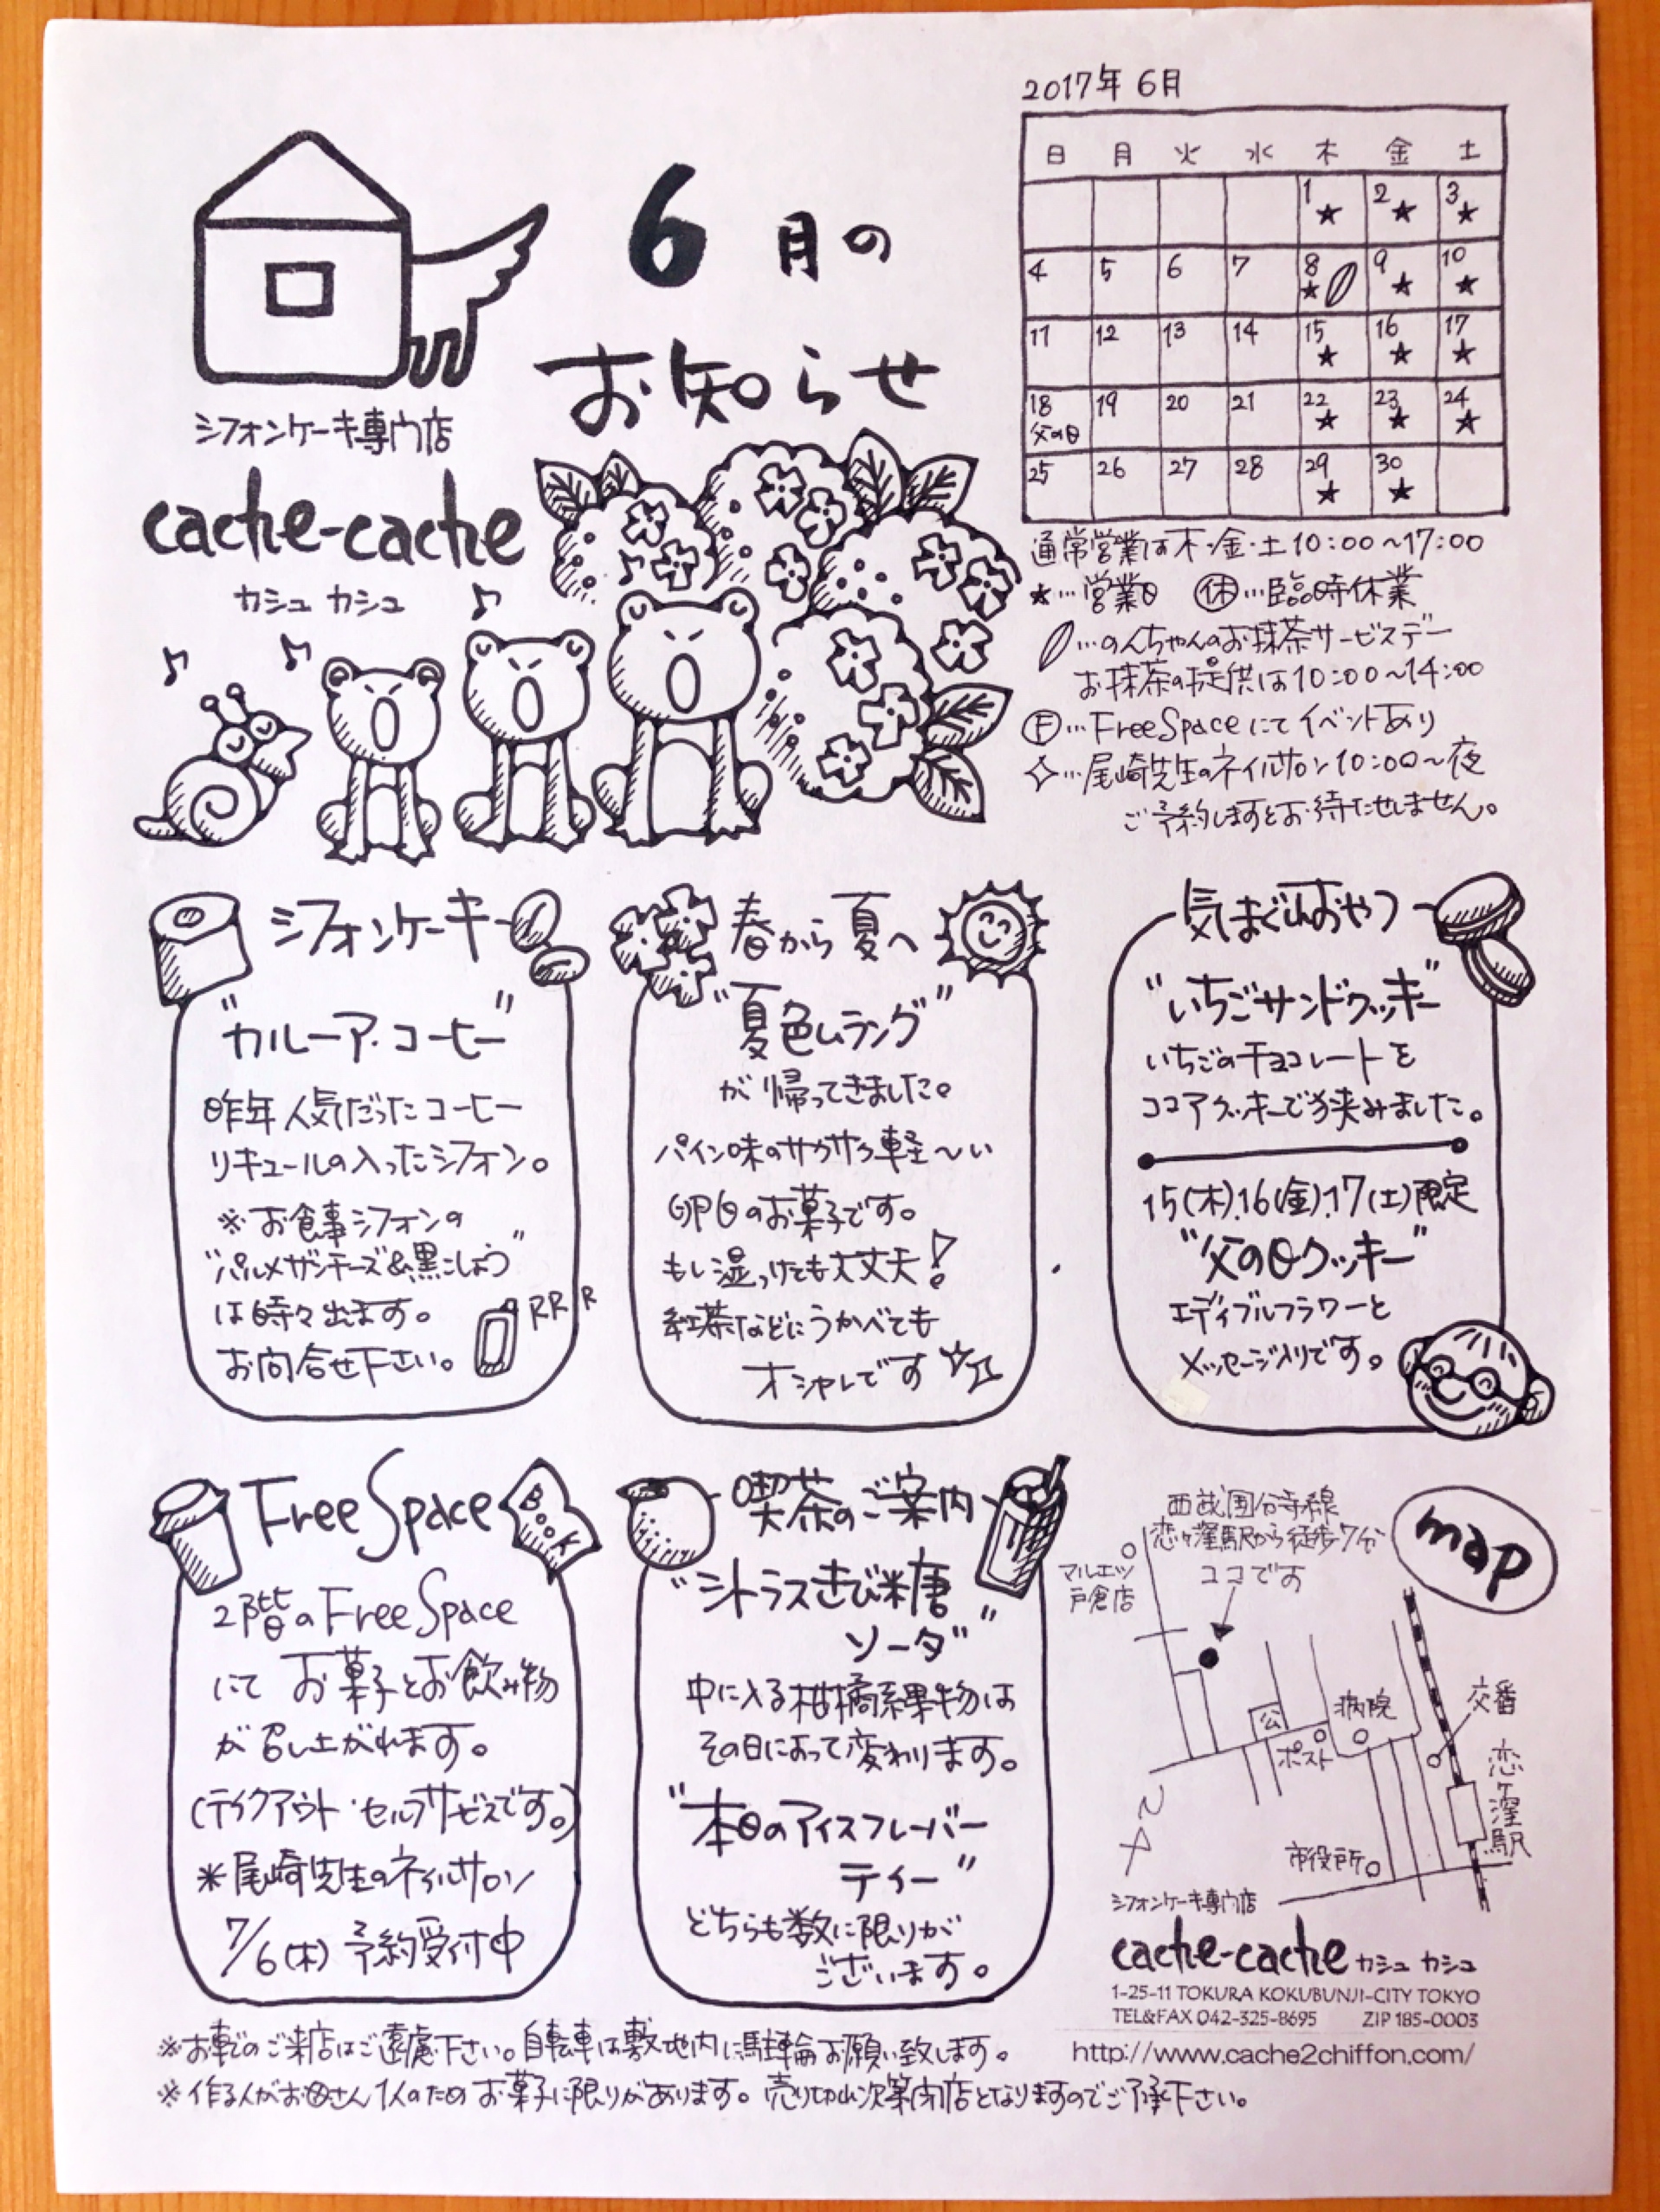 6月の
お知らせ
シフォンケーキ専門店
cache-cache
カシュ カシュ
2017年 6月
日 月 火 水 木 金 土
1★ 2★ 3★
4 5 6 7 8★ 9★ 10★
11 12 13 14 15★ 16★ 17★
18 父の日 19 20 21 22★ 23★ 24★
25 26 27 28 29★ 30★
通常営業は木・金・土10:00〜17:00
★…営業日 ㊡…臨時休業
…のんちゃんのお抹茶サービスデー
お抹茶の提供は10:00〜14:00
Ⓕ…FreeSpaceにてイベントあり
✧…尾崎先生のネイルサロン10:00〜夜
ご予約しますとお待たせしません。
シフォンケーキ
"カルーア・コーヒー"
昨年人気だったコーヒー
リキュールの入ったシフォン。
※お食事シフォンの
"パルメザンチーズ&黒こしょう"
は時々出ます。
お問合せ下さい。
RRR
春から夏へ
"夏色ムラング"
が帰ってきました。
パイン味のサクサク軽〜い
卵白のお菓子です。
もし湿っけても大丈夫!
紅茶などにうかべても
オシャレです
気まぐれおやつ
"いちごサンドクッキー"
いちごのチョコレートを
ココアクッキーで挟みました。
15(木).16(金).17(土)限定
"父の日クッキー"
エディブルフラワーと
メッセージ入りです。
Free Space
BOOK
2階のFree Space
にて お菓子とお飲み物
が召し上がれます。
(テイクアウト・セルフサービスです。)
*尾崎先生のネイルサロン
7/6(木) 予約受付中
喫茶のご案内
"シトラスきび糖
ソーダ"
中に入る柑橘系果物は
その日によって変わります。
"本日のアイスフレーバー
ティー"
どちらも数に限りが
ございます。
map
西武国分寺線
恋ヶ窪駅から徒歩7分
ココです
マルエツ
戸倉店
公
ポスト
病院
交番
恋ヶ窪駅
市役所
シフォンケーキ専門店
cache-cache カシュ カシュ
1-25-11 TOKURA KOKUBUNJI-CITY TOKYO
TEL&FAX 042-325-8695 ZIP 185-0003
http://www.cache2chiffon.com/
※お車でのご来店はご遠慮下さい。自転車は敷地内に駐輪お願い致します。
※作る人がお母さん1人のためお菓子に限りがあります。売り切れ次第閉店となりますのでご了承下さい。